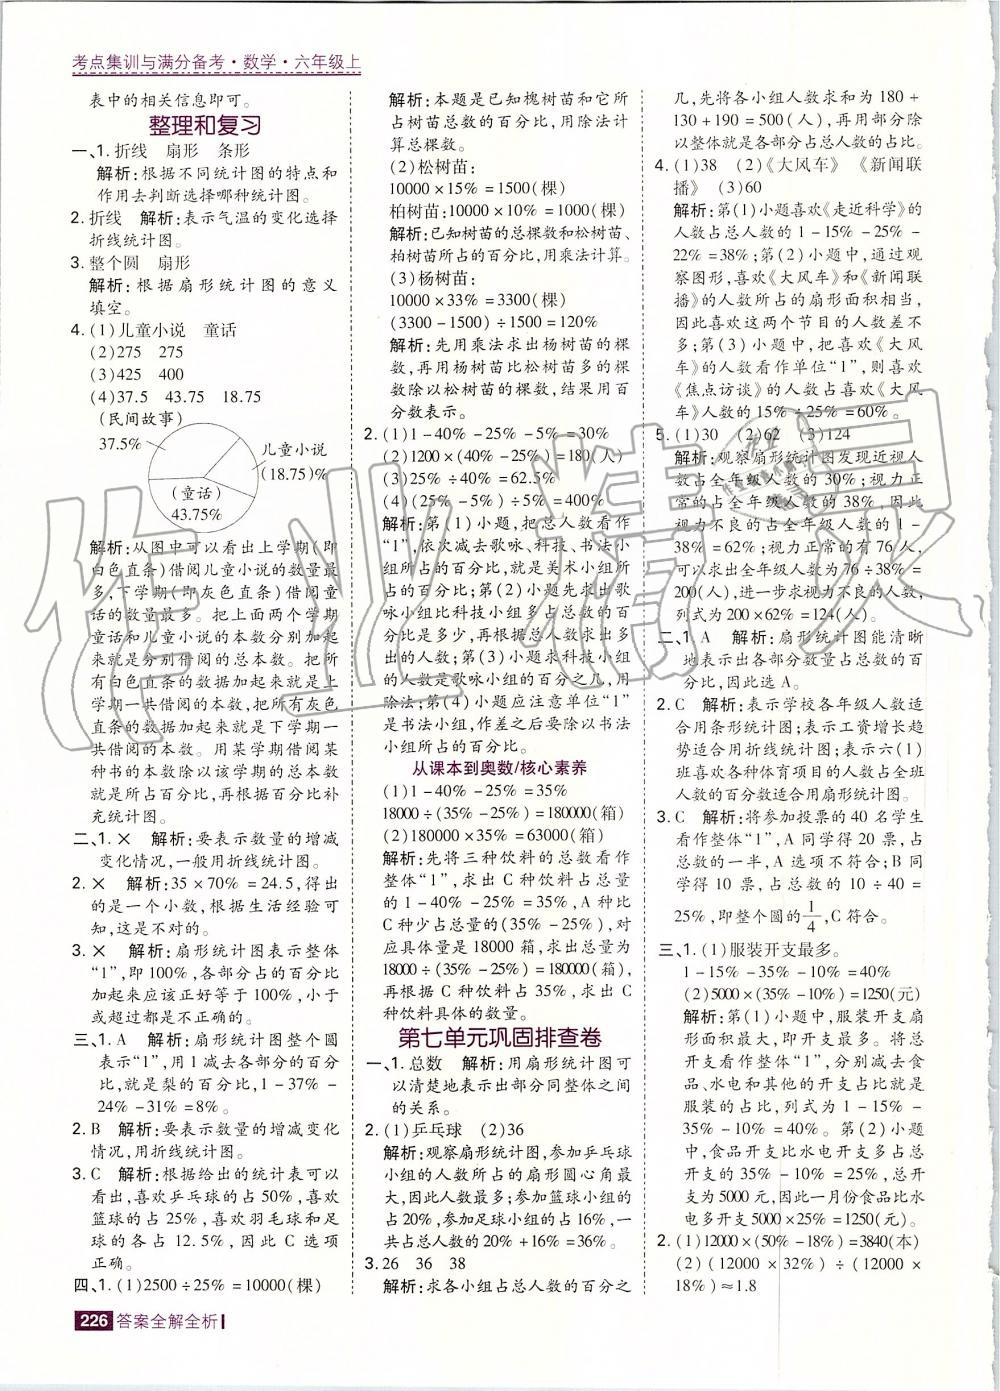 考点集训与满分备考·数学·六年级上
表中的相关信息即可。
整理和复习
一、1. 折线　扇形　条形
解析:根据不同统计图的特点和
作用去判断选择哪种统计图。
2. 折线　解析:表示气温的变化选择
折线统计图。
3. 整个圆　扇形
解析:根据扇形统计图的意义
填空。
4. (1)儿童小说　童话
(2)275　275
(3)425　400
(4)37.5　43.75　18.75
(民间故事)
37.5%
儿童小说
(18.75)%
(童话)
43.75%
解析:从图中可以看出上学期(即
白色直条)借阅儿童小说的数量最
多,下学期(即灰色直条)借阅童
话的数量最多。把上面两个学期
童话和儿童小说的本数分别加起
来就是分别借阅的总本数。把所
有白色直条的数据加起来就是上
学期一共借阅的本数,把所有灰色
直条的数据加起来就是下学期一
共借阅的本数。用某学期借阅某
种书的本数除以该学期的总本数
就是所占百分比,根据百分比补
充统计图。
二、1. ×　解析:要表示数量的增减
变化情况,一般用折线统计图。
2. ×　解析:35×70%=24.5,得出
的是一个小数,根据生活经验可
知,这是不对的。
3. ×　解析:扇形统计图表示整体
“1”,即100%,各部分占的百分比
加起来应该正好等于100%,小于
或超过都是不正确的。
三、1. A　解析:扇形统计图整个圆
表示“1”,用1减去各部分的百分
比,就是梨的百分比,1-37%-
24%-31%=8%。
2. B　解析:要表示数量的增减变化
情况,用折线统计图。
3. C　解析:根据给出的统计表可以
看出,喜欢乒乓球的占50%,喜欢
篮球的占25%,喜欢羽毛球和足
球的各占12.5%,因此C选项
正确。
四、1. (1)2500÷25%=10000(棵)
解析:本题是已知槐树苗和它所
占树苗总数的百分比,用除法计
算总棵数。
(2)松树苗:
10000×15%=1500(棵)
柏树苗:10000×10%=1000(棵)
解析:已知树苗的总棵数和松树苗、
柏树苗所占的百分比,用乘法计算。
(3)杨树苗:
10000×33%=3300(棵)
(3300-1500)÷1500=120%
解析:先用乘法求出杨树苗的棵
数,再用杨树苗比松树苗多的棵
数除以松树苗的棵数,结果用百
分数表示。
2. (1)1-40%-25%-5%=30%
(2)1200×(40%-25%)=180(人)
(3)25%÷40%=62.5%
(4)(25%-5%)÷5%=400%
解析:第(1)小题,把总人数看作
“1”,依次减去歌咏、科技、书法小
组所占百分比,就是美术小组所
占百分比;第(2)小题先求出歌
咏小组比科技小组多占总数的百
分比是多少,再根据总人数求出多
出的人数;第(3)小题求科技小组
的人数是歌咏小组的百分之几,用
除法;第(4)小题应注意单位“1”
是书法小组,作差之后要除以书法
小组所占的百分比。
从课本到奥数/核心素养
(1)1-40%-25%=35%
18000÷(35%-25%)=180000(箱)
(2)180000×35%=63000(箱)
解析:先将三种饮料的总数看作
整体“1”,求出C种饮料占总量
的1-40%-25%=35%,A种比
C种少占总量的(35%-25%),对
应具体量是18000箱,求出总量为
18000÷(35%-25%)=180000(箱),
再根据C种饮料占35%,求出C
种饮料具体的数量。
第七单元巩固排查卷
一、1. 总数　解析:用扇形统计图可
以清楚地表示出部分同整体之间
的关系。
2. (1)乒乓球　(2)36
解析:观察扇形统计图,参加乒乓球
小组的人数所占的扇形圆心角最
大,因此人数最多;参加篮球小组的
占20%,参加足球小组的占16%,一
共占总人数的20%+16%=36%。
3. 26　36　38
解析:求各小组占总人数的百分之
几,先将各小组人数求和为180+
130+190=500(人),再用部分除
以整体就是各部分占总人数的占比。
4. (1)38　(2)《大风车》《新闻联
播》　(3)60
解析:第(1)小题喜欢《走近科学》的
人数占总人数的1-15%-25%-
22%=38%;第(2)小题中,通过观
察图形,喜欢《大风车》和《新闻联
播》的人数所占的扇形面积相当,
因此喜欢这两个节目的人数差不
多;第(3)小题中,把喜欢《大风
车》的人数看作单位“1”,则喜欢
《焦点访谈》的人数占喜欢《大风
车》人数的15%÷25%=60%。
5. (1)30　(2)62　(3)124
解析:观察扇形统计图发现近视人
数占全年级人数的30%;视力正
常的占全年级人数的38%,因此
视力不良的占全年级人数的1-
38%=62%;视力正常的有76人,
可以求出全年级人数为76÷38%=
200(人),进一步求视力不良的人数,
列式为200×62%=124(人)。
二、1. A　解析:扇形统计图能清晰
地表示出各部分数量占总数的百
分比,因此选A。
2. C　解析:表示学校各年级人数适
合用条形统计图;表示工资增长趋
势适合用折线统计图;表示六(1)
班喜欢各种体育项目的人数占全班
人数的百分数适合用扇形统计图。
3. C　解析:将参加投票的40名学生
看作整体“1”,A同学得20票,占
总数的一半,A选项不符合;B同
学得10票,占总数的10÷40=
25%,即整个圆的1/4,C符合。
三、1. (1)服装开支最多。
1-15%-35%-10%=40%
(2)5000×(35%-10%)=1250(元)
解析:第(1)小题中,服装开支扇
形面积最大,即开支最多。将总
开支看作整体“1”,分别减去食
品、水电和其他的开支占比就是
服装的占比,列式为1-15%-
35%-10%=40%。第(2)小题
中,食品开支比水电开支多占总
开支的35%-10%=25%,总开
支为5000元,因此一月份食品比水
电多开支5000×25%=1250(元)。
2. (1)12000×(50%-18%)=3840(本)
(2)(12000×32%)÷(12000×
18%)≈1.8
226 答案全解全析
作业精灵